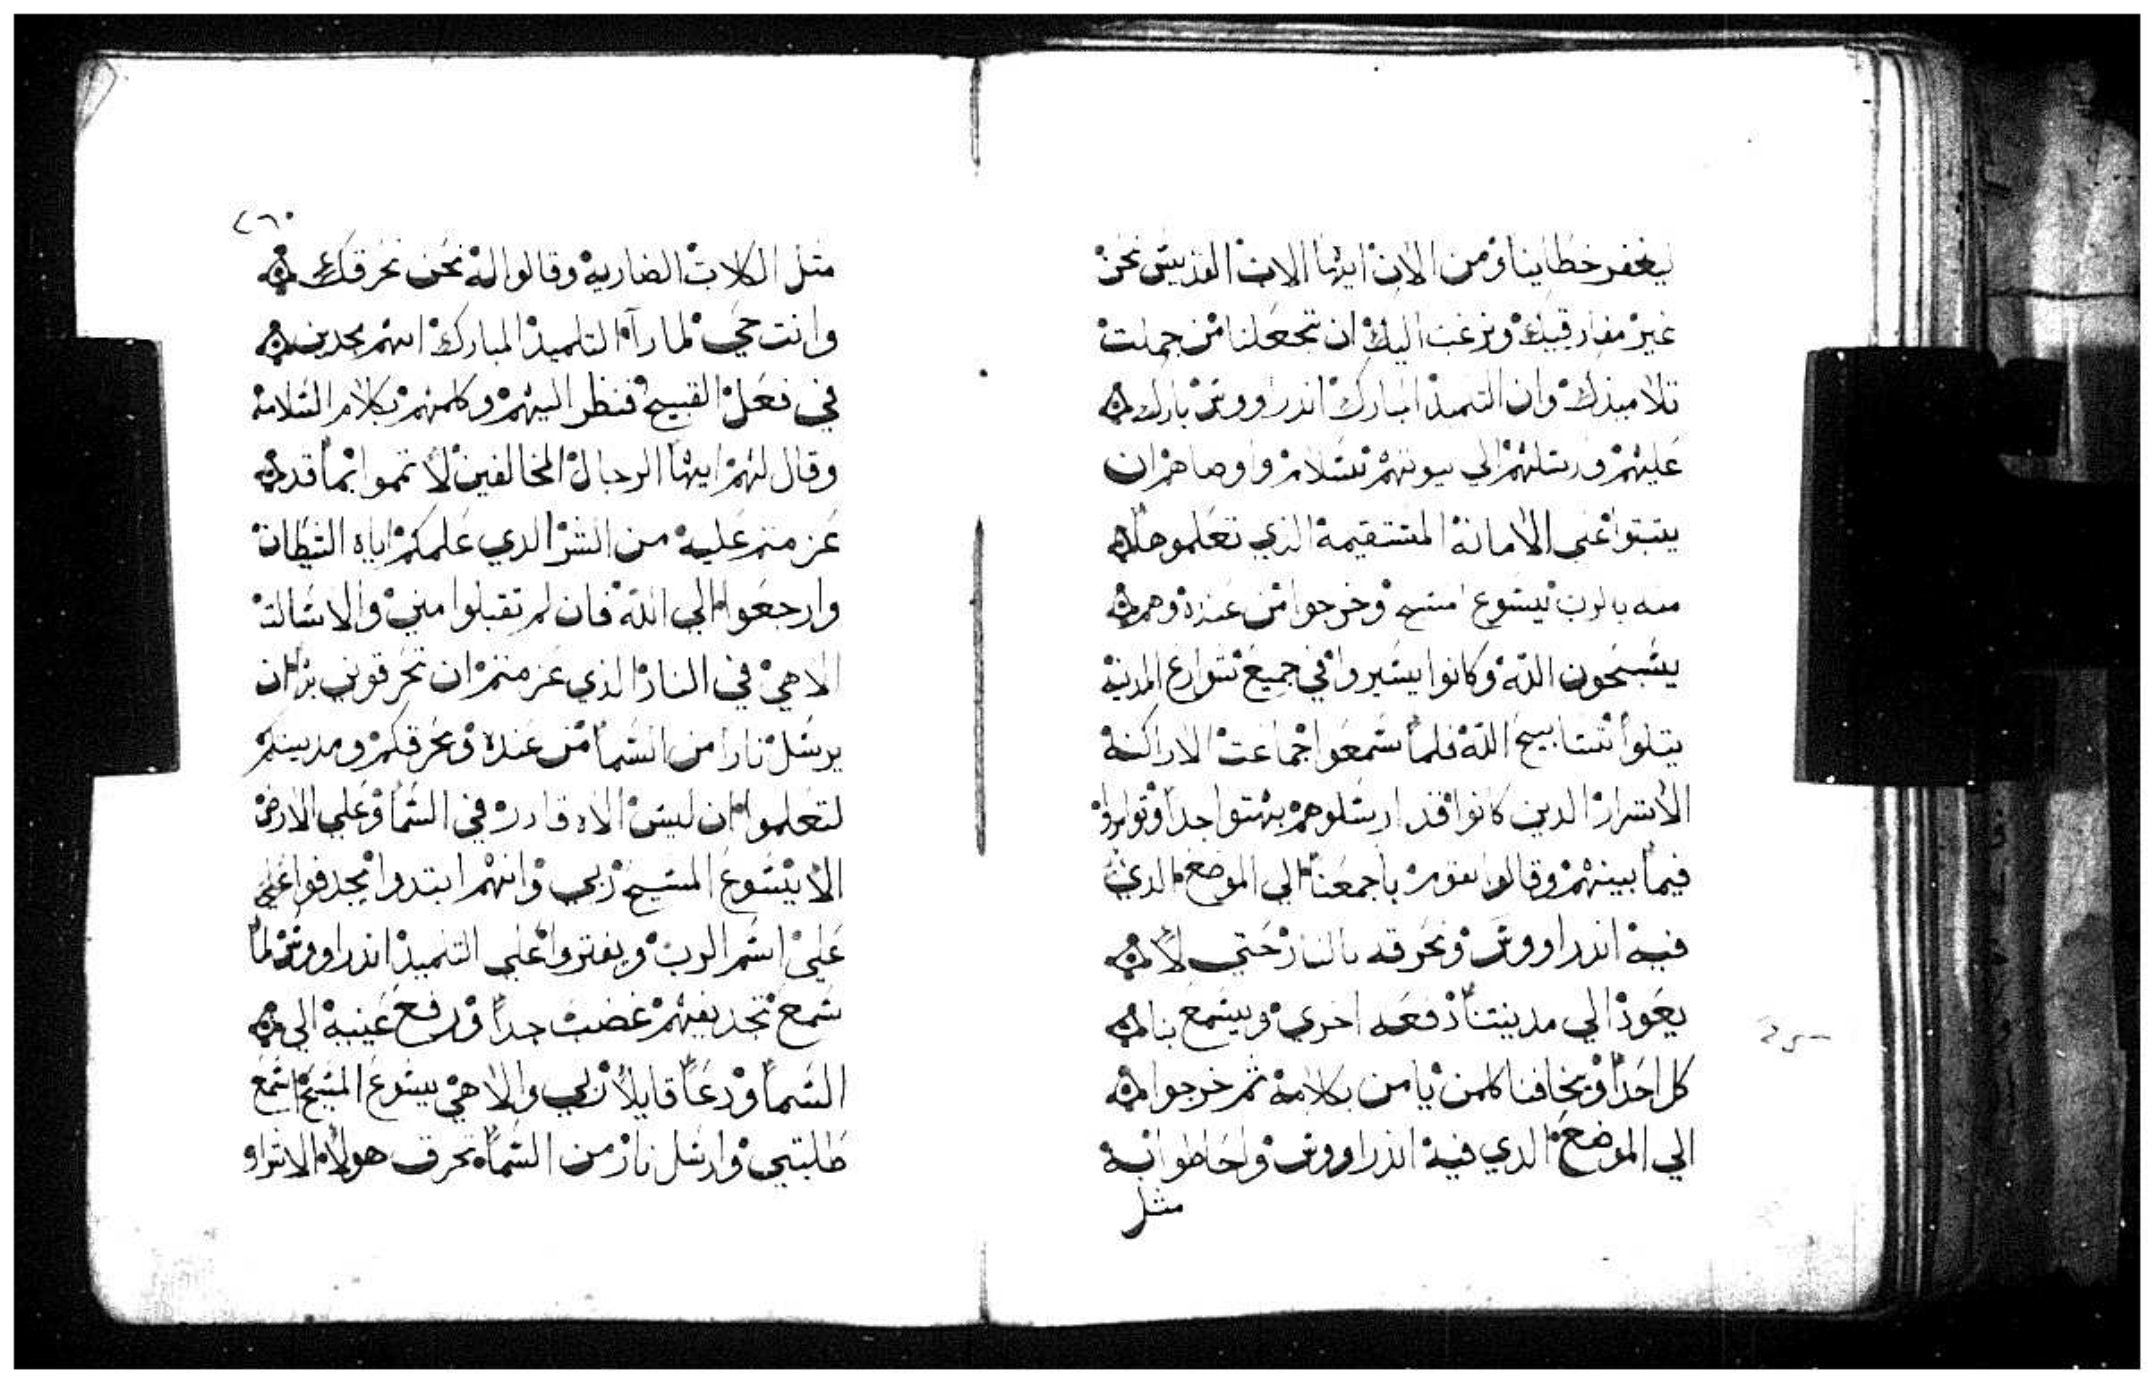 ليغفر خطايانا ومن الان ايها الاب القديس نحن
غير مفارقينك ونرغب اليك ان تجعلنا من جملت
تلاميذك وان التلميذ المبارك اندراووس بارك
عليهم ورسلهم الي بيوتهم بسلام واوصاهم ان
يتبتوا علي الامانة المستقيمة الذي تعلموها
منه بالرب يسوع المسيح وخرجوا من عنده وهم
يسبحون الله وكانوا يسيروا في جميع شوارع المدينة
يتلوا تسابيح الله فلما سمعوا جماعت الاراكنة
الاشرار الدين كانوا قد ارسلوهم بهتوا جدا وتوامروا
فيما بينهم وقالوا نقوم باجمعنا الي الموضع الدي
فيه اندراووس ونحرقه بالنار حتي لا
يعود الي مدينتنا دفعه اخري ويسمع بنا
كل احد ويخافنا كلمن يامن بكلامه ثم خرجوا
الي الموضع الدي فيه اندراووس واحاطوا به
مثل
٢٦٠
مثل الكلاب الضاريه وقالوا له نحن نحرقك
وانت حي لما راه التلميذ المبارك انهم مجدين
في فعل القبيح فنظر اليهم وكلمهم بكلام السلامة
وقال لهم ايها الرجال المخالفين لا تتموا بما قد
عزمتم عليه من الشر الدي علمكم اياه الشيطان
وارجعوا الي الله فان لم تقبلوا مني والا سالت
الاهي في النار الذي عزمتم ان تحرقوني بها ان
يرسل نارا من السما من عنده وتحرقكم ومدينتكم
لتعلموا ان ليس الاه قادر في السما وعلي الارض
الا يسوع المسيح ربي وانهم ابتدوا يجدفوا علي
علي اسم الرب ويفتروا علي التلميذ اندراووس لما
سمع تجديفهم غضب جدا ورفع عينيه الي
السما ودعا قايلا ربي والاهي يسوع المسيح اسمع
طلبتي وارسل نار من السما تحرق هولا الاشرار